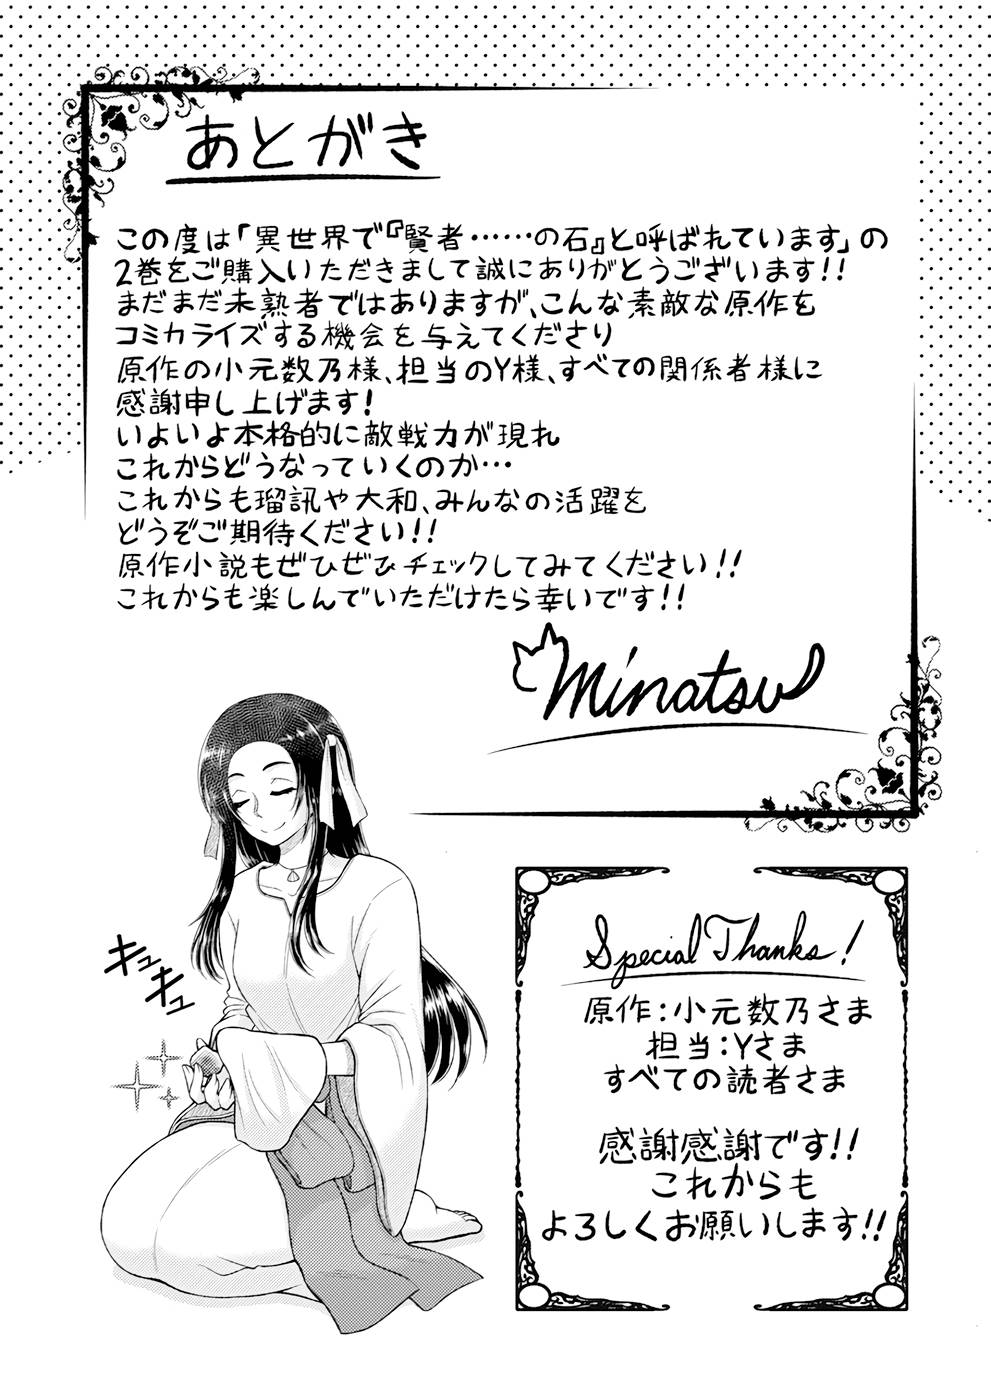 あとがき
この度は「異世界で『賢者……の石』と呼ばれています」の
2巻をご購入いただきまして誠にありがとうございます!!
まだまだ未熟者ではありますが、こんな素敵な原作を
コミカライズする機会を与えてくださり
原作の小元数乃様、担当のY様、すべての関係者様に
感謝申し上げます!
いよいよ本格的に敵戦力が現れ
これからどうなっていくのか…
これからも瑠訊や大和、みんなの活躍を
どうぞご期待ください!!
原作小説もぜひぜひチェックしてみてください!!
これからも楽しんでいただけたら幸いです!!
Minatsu
キュッ
キュッ
Special Thanks!
原作:小元数乃さま
担当:Yさま
すべての読者さま
感謝感謝です!!
これからも
よろしくお願いします!!